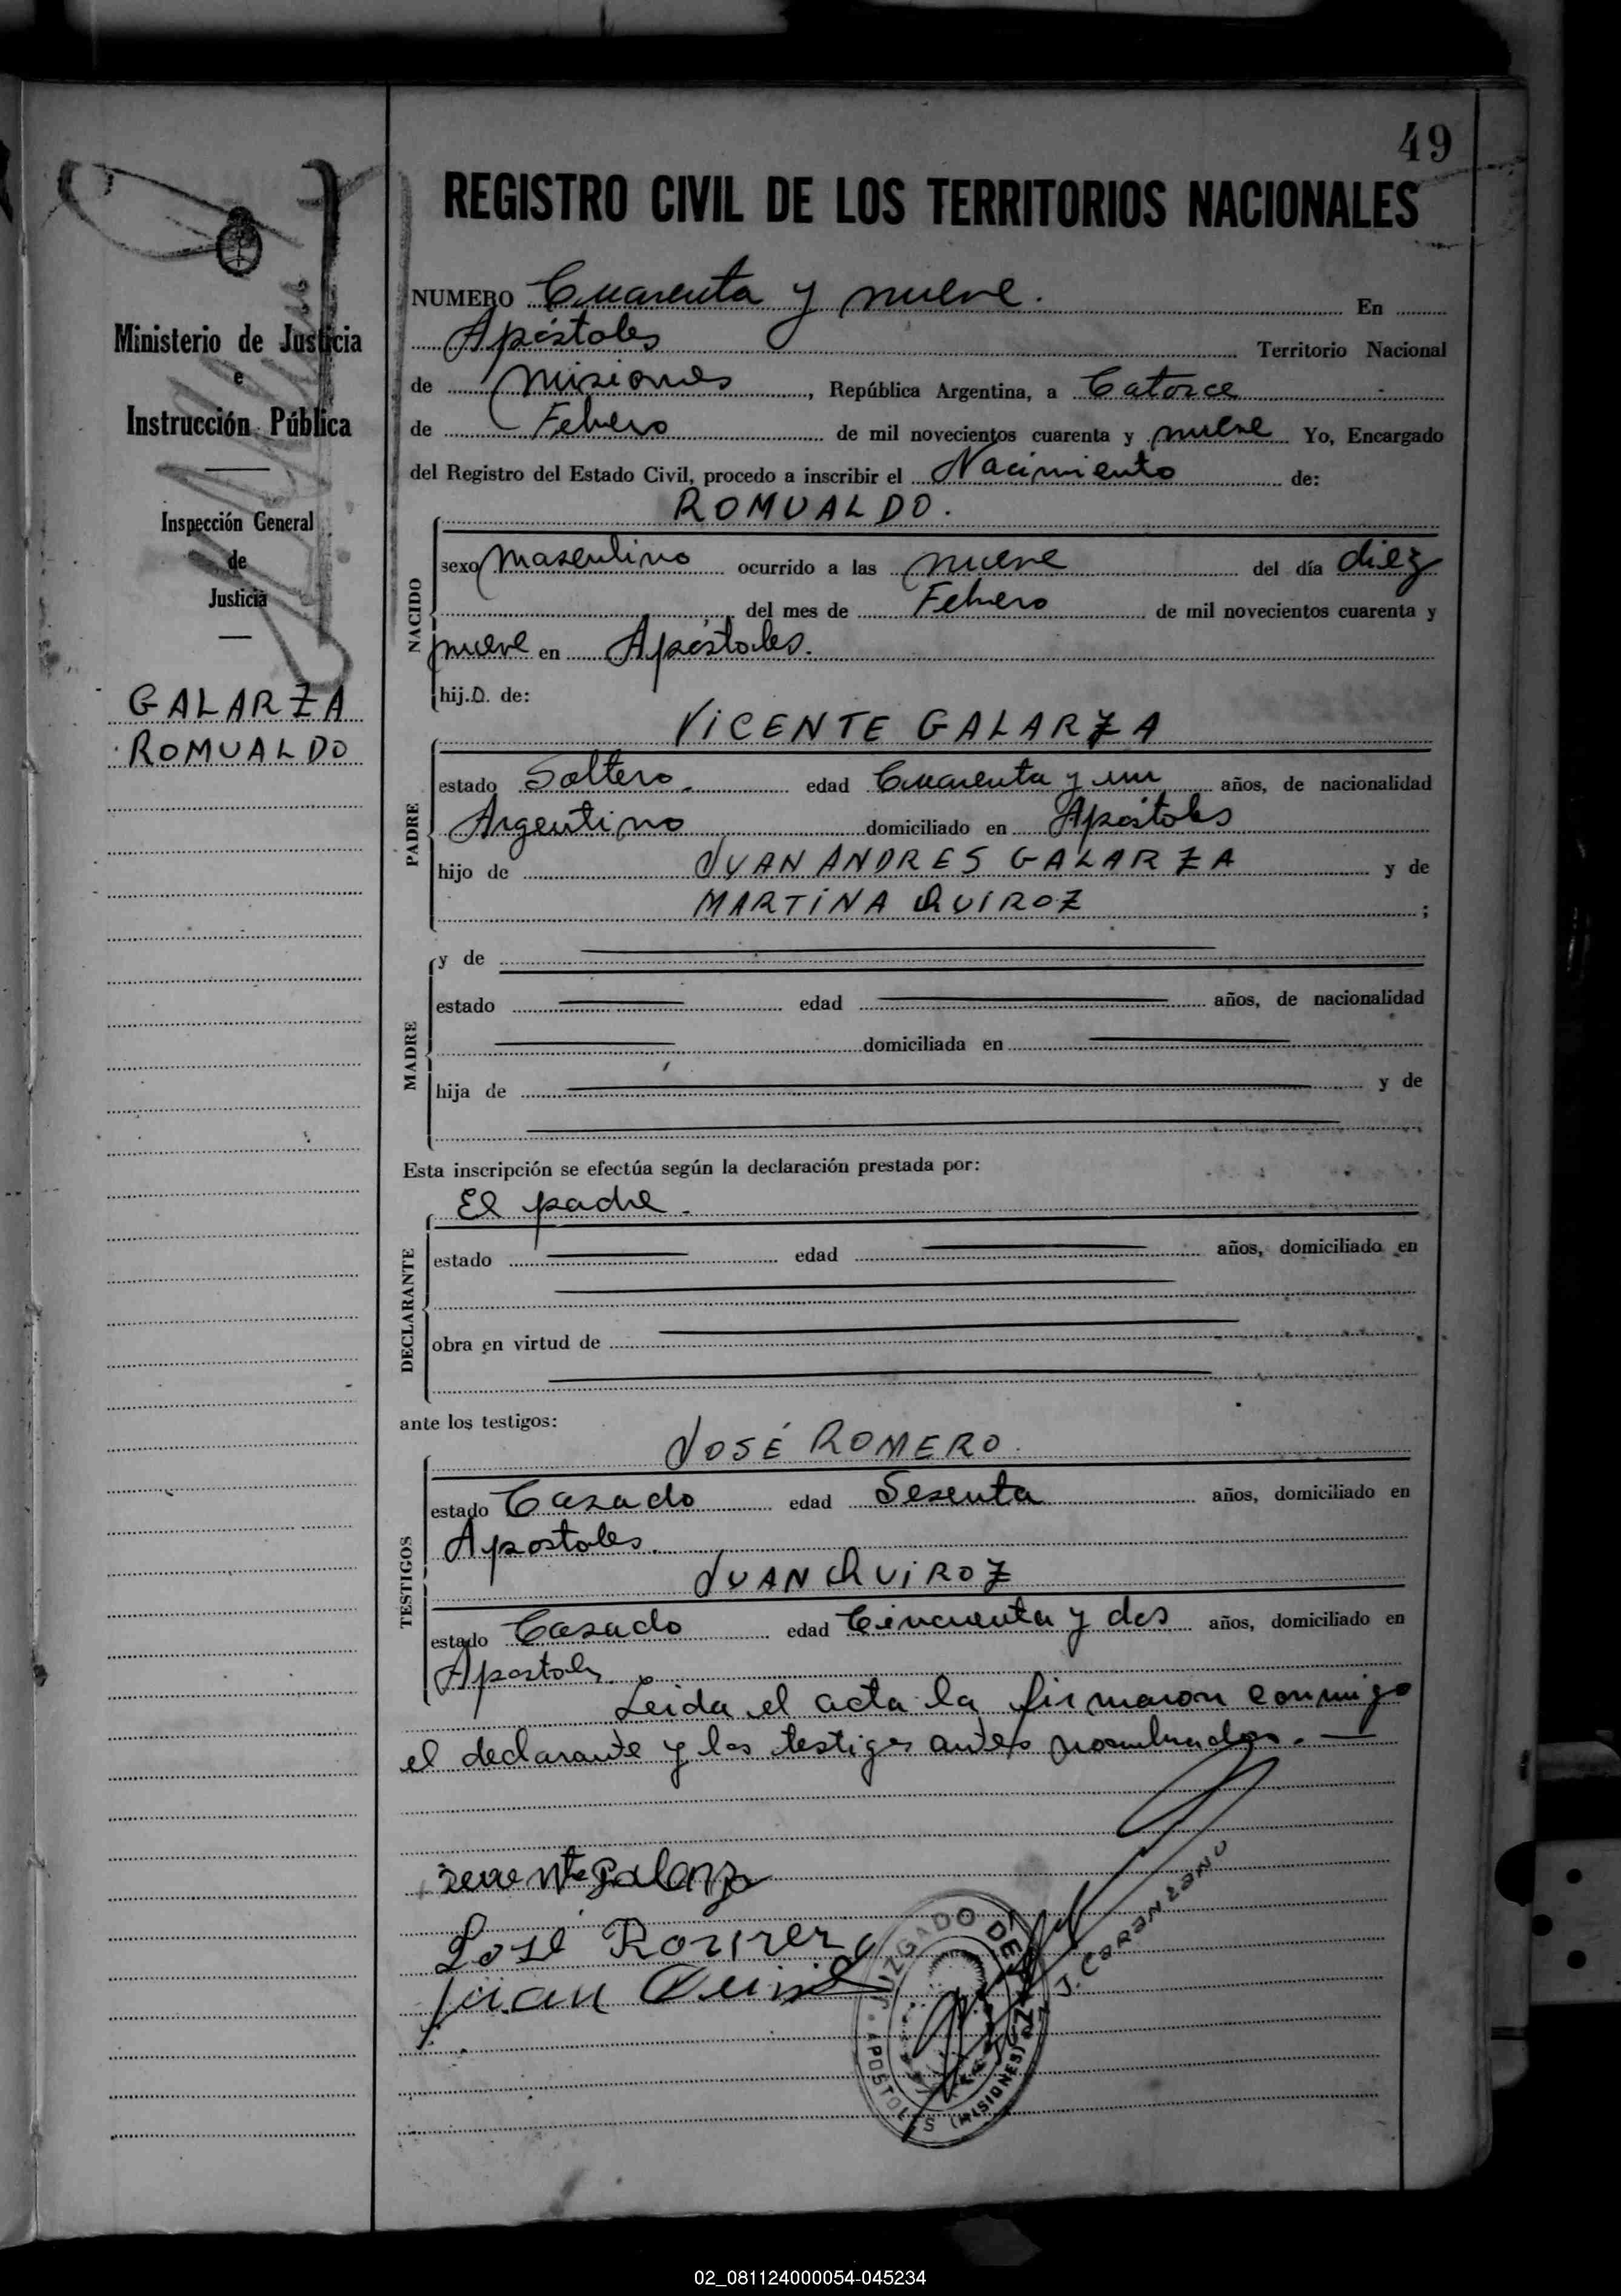 49
REGISTRO CIVIL DE LOS TERRITORIOS NACIONALES
Ministerio de Justicia
e
Instrucción Pública
Inspección General
de
Justicia
GALARZA
ROMUALDO
NUMERO Cuarenta y nueve. En
Apóstoles Territorio Nacional
de Misiones, República Argentina, a Catorce
de Febrero de mil novecientos cuarenta y nueve Yo, Encargado
del Registro del Estado Civil, procedo a inscribir el Nacimiento de:
ROMUALDO.
NACIDO
sexo masculino ocurrido a las nueve del día diez
del mes de Febrero de mil novecientos cuarenta y
nueve en Apóstoles.
hij.o. de:
VICENTE GALARZA
PADRE
estado Soltero. edad Cuarenta y un años, de nacionalidad
Argentino domiciliado en Apóstoles
hijo de JUAN ANDRES GALARZA y de
MARTINA QUIROZ ;
MADRE
y de
estado edad años, de nacionalidad
domiciliada en
hija de y de
Esta inscripción se efectúa según la declaración prestada por:
El padre.
DECLARANTE
estado edad años, domiciliado en
obra en virtud de
ante los testigos:
JOSÉ ROMERO.
TESTIGOS
estado Casado edad Sesenta años, domiciliado en
Apostoles.
JUAN QUIROZ
estado Casado edad Cincuenta y dos años, domiciliado en
Apostoles
Leida el acta la firmaron conmigo
el declarante y los testigos antes nombrados. —
Galarza
José Romero
Juan
JUZGADO DE PAZ
APOSTOLES (MISIONES)
02_081124000054-045234